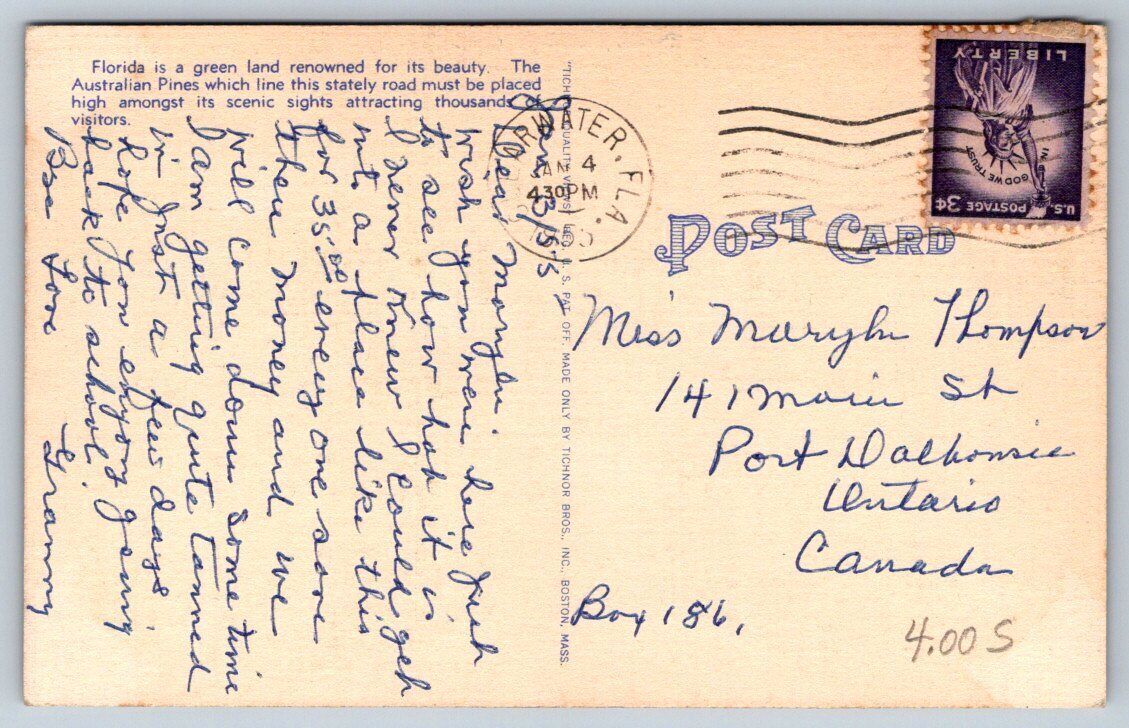 Florida is a green land renowned for its beauty. The
Australian Pines which line this stately road must be placed
high amongst its scenic sights attracting thousands of
visitors.
Jan 3/55
Dear Marylin
wish you were here just
to see how hot it is
I never knew I could get
into a place like this
for 35.00 every one save
their money and we
will come down some time
I am getting quite tanned
in Just a few days
hope you enjoy going
back to school.
Bye Love Grammy
"TICHNOR QUALITY VIEWS," REG. U. S. PAT. OFF. MADE ONLY BY TICHNOR BROS., INC., BOSTON, MASS.
RWATER. FLA.
JAN 4
430PM
POST CARD
LIBERTY
IN GOD WE TRUST
U.S. POSTAGE 3¢
Miss Marylin Thompson
141 Main St
Port Dalhousie
Ontario
Canada
Box 186,
4.00 S